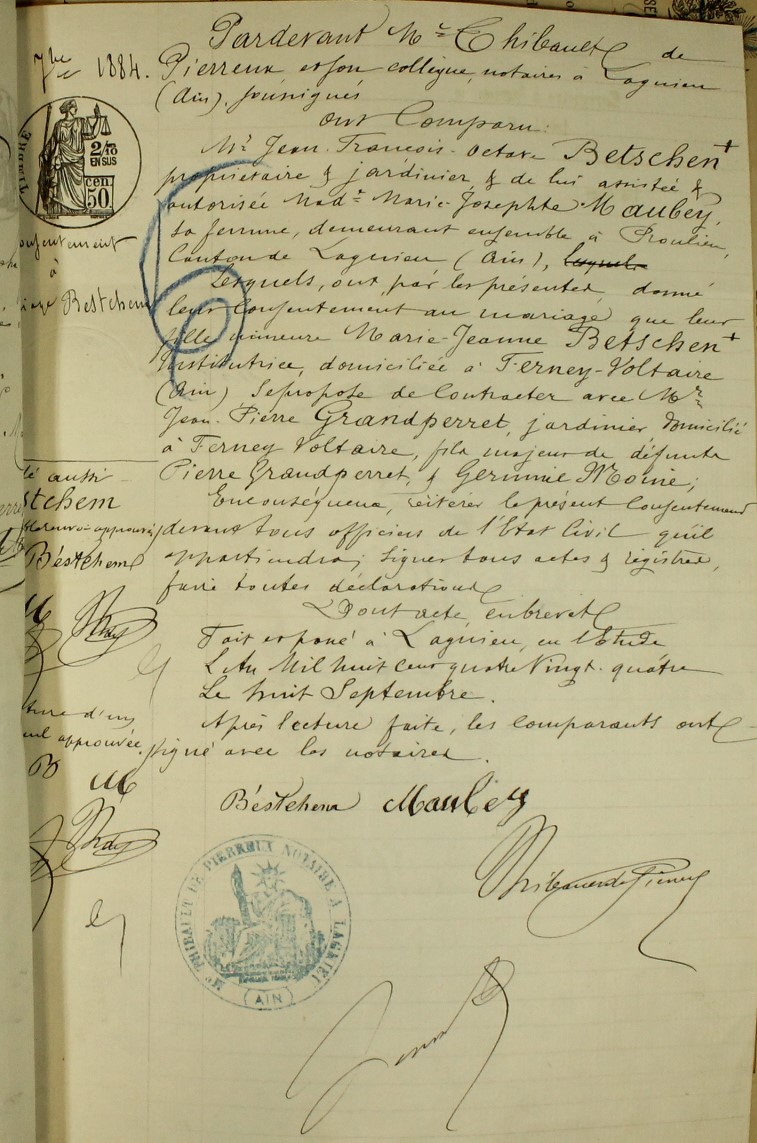 7bre 1884.
Pardevant Me Thibault de
Pierreux et son collègue, notaires à Lagnieu
(Ain), soussignés
ont Comparu:
Mr Jean-François-Octave Betschen+
propriétaire & jardinier, & de lui assistée &
autorisée Made Marie-Josephte Maubey,
sa femme, demeurant ensemble à Proulieu,
Canton de Lagnieu (Ain), lesquels
Lesquels, ont par les présentes, donné
leur Consentement au mariage que leur
fille mineure Marie-Jeanne Betschen+
Institutrice, domiciliée à Ferney-Voltaire
(Ain), Se propose de Contracter avec Mr
Jean-Pierre Grandperret, jardinier domicilié
à Ferney Voltaire, fils majeur de défunts
Pierre Grandperret, & Germinie Moine;
En conséquence, réitérer le présent Consentement
devant tous officiers de l'Etat Civil qu'il
appartiendra; Signer tous actes & registres,
faire toutes déclarations
Dont acte, en brevet
Fait et passé à Lagnieu, en l'Etude
L'An Mil huit cent quatre Vingt-quatre
Le huit Septembre.
Après lecture faite, les comparants ont
signé avec les notaires.
Béstchem Maubey
Thibault de Pierreux
TIMBRE
2/10
EN SUS
50 cen
onsentement
à
iage Bestchem
lé aussi
stchem
approuvé
Béstchem
M
ture d'un
nul approuvée.
B M
Me THIBAULT DE PIERREUX NOTAIRE A LAGNIEU
(AIN)